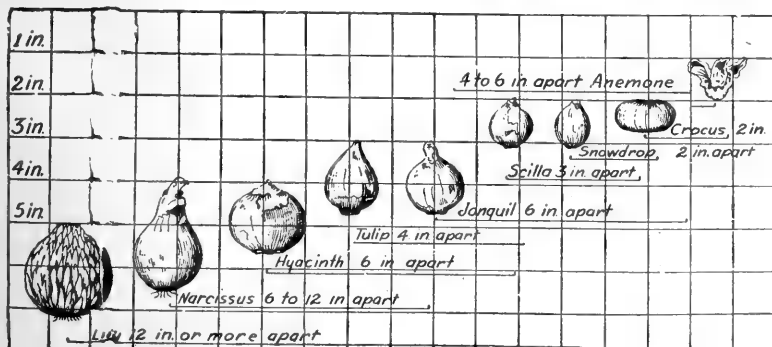 1 in.
2 in.
3 in.
4 in.
5 in
4 to 6 in apart Anemone
Crocus, 2 in.
Snowdrop, 2 in. apart
Scilla 3 in apart
Jonquil 6 in apart
Tulip 4 in apart
Hyacinth 6 in apart
Narcissus 6 to 12 in apart
Lily 12 in. or more apart